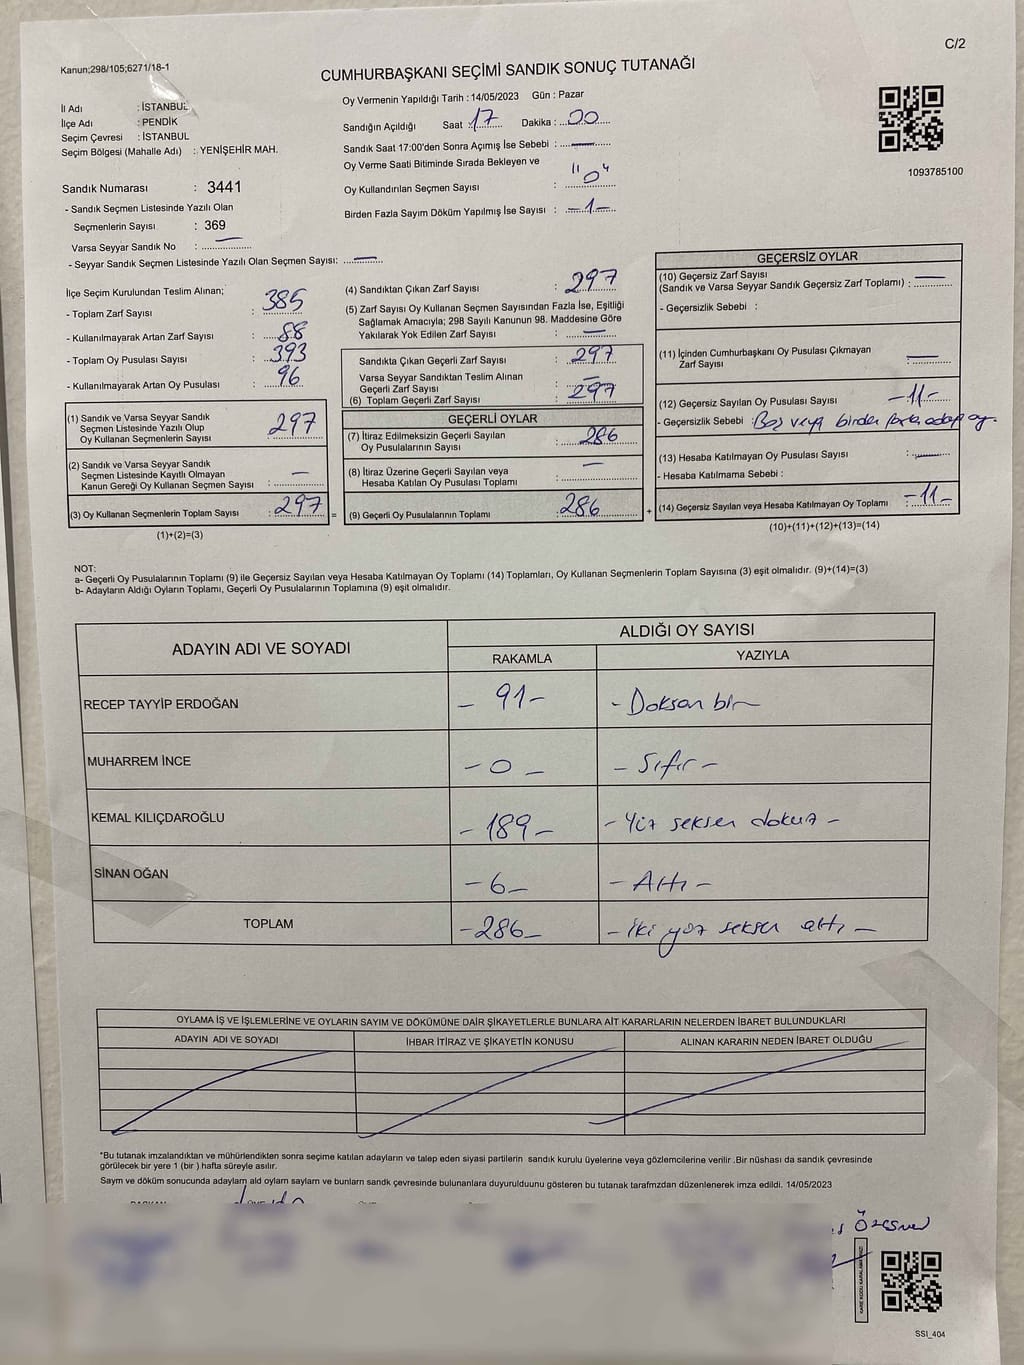 C/2
Kanun;298/105;6271/18-1
CUMHURBAŞKANI SEÇİMİ SANDIK SONUÇ TUTANAĞI
İl Adı : İSTANBUL
İlçe Adı : PENDİK
Seçim Çevresi : İSTANBUL
Seçim Bölgesi (Mahalle Adı) : YENİŞEHİR MAH.
Oy Vermenin Yapıldığı Tarih : 14/05/2023 Gün : Pazar
Sandığın Açıldığı Saat : 17 Dakika : 00
Sandık Saat 17:00'den Sonra Açımış İse Sebebi : —
Oy Verme Saati Bitiminde Sırada Bekleyen ve
Oy Kullandırılan Seçmen Sayısı : "0"
Birden Fazla Sayım Döküm Yapılmış İse Sayısı : -1-
1093785100
Sandık Numarası : 3441
- Sandık Seçmen Listesinde Yazılı Olan
Seçmenlerin Sayısı : 369
Varsa Seyyar Sandık No : —
- Seyyar Sandık Seçmen Listesinde Yazılı Olan Seçmen Sayısı: —
İlçe Seçim Kurulundan Teslim Alınan;
- Toplam Zarf Sayısı : 385
- Kullanılmayarak Artan Zarf Sayısı : 88
- Toplam Oy Pusulası Sayısı : 393
- Kullanılmayarak Artan Oy Pusulası : 96
(1) Sandık ve Varsa Seyyar Sandık
Seçmen Listesinde Yazılı Olup
Oy Kullanan Seçmenlerin Sayısı : 297
(2) Sandık ve Varsa Seyyar Sandık
Seçmen Listesinde Kayıtlı Olmayan
Kanun Gereği Oy Kullanan Seçmen Sayısı : —
(3) Oy Kullanan Seçmenlerin Toplam Sayısı : 297 =
(1)+(2)=(3)
(4) Sandıktan Çıkan Zarf Sayısı : 297
(5) Zarf Sayısı Oy Kullanan Seçmen Sayısından Fazla İse, Eşitliği
Sağlamak Amacıyla; 298 Sayılı Kanunun 98. Maddesine Göre
Yakılarak Yok Edilen Zarf Sayısı : —
Sandıkta Çıkan Geçerli Zarf Sayısı : 297
Varsa Seyyar Sandıktan Teslim Alınan
Geçerli Zarf Sayısı : —
(6) Toplam Geçerli Zarf Sayısı : 297
GEÇERLİ OYLAR
(7) İtiraz Edilmeksizin Geçerli Sayılan
Oy Pusulalarının Sayısı : 286
(8) İtiraz Üzerine Geçerli Sayılan veya
Hesaba Katılan Oy Pusulası Toplamı : —
(9) Geçerli Oy Pusulalarının Toplamı : 286 +
GEÇERSİZ OYLAR
(10) Geçersiz Zarf Sayısı
(Sandık ve Varsa Seyyar Sandık Geçersiz Zarf Toplamı) : —
- Geçersizlik Sebebi :
(11) İçinden Cumhurbaşkanı Oy Pusulası Çıkmayan
Zarf Sayısı : —
(12) Geçersiz Sayılan Oy Pusulası Sayısı -11-
- Geçersizlik Sebebi : Boş veya birden fazla adaya oy.
(13) Hesaba Katılmayan Oy Pusulası Sayısı : —
- Hesaba Katılmama Sebebi :
(14) Geçersiz Sayılan veya Hesaba Katılmayan Oy Toplamı : -11-
(10)+(11)+(12)+(13)=(14)
NOT:
a- Geçerli Oy Pusulalarının Toplamı (9) ile Geçersiz Sayılan veya Hesaba Katılmayan Oy Toplamı (14) Toplamları, Oy Kullanan Seçmenlerin Toplam Sayısına (3) eşit olmalıdır. (9)+(14)=(3)
b- Adayların Aldığı Oyların Toplamı, Geçerli Oy Pusulalarının Toplamına (9) eşit olmalıdır.
ADAYIN ADI VE SOYADI ALDIĞI OY SAYISI
RAKAMLA YAZIYLA
RECEP TAYYİP ERDOĞAN - 91 - - Doksan bir
MUHARREM İNCE - 0 - - Sıfır -
KEMAL KILIÇDAROĞLU - 189 - - Yüz seksen dokuz -
SİNAN OĞAN - 6 - - Altı -
TOPLAM - 286 - - İki yüz seksen altı -
OYLAMA İŞ VE İŞLEMLERİNE VE OYLARIN SAYIM VE DÖKÜMÜNE DAİR ŞİKAYETLERLE BUNLARA AİT KARARLARIN NELERDEN İBARET BULUNDUKLARI
ADAYIN ADI VE SOYADI İHBAR İTİRAZ VE ŞİKAYETİN KONUSU ALINAN KARARIN NEDEN İBARET OLDUĞU
*Bu tutanak imzalandıktan ve mühürlendikten sonra seçime katılan adayların ve talep eden siyasi partilerin sandık kurulu üyelerine veya gözlemcilerine verilir .Bir nüshası da sandık çevresinde
görülecek bir yere 1 (bir ) hafta süreyle asılır.
Sayım ve döküm sonucunda adaylam ald oylam saylam ve bunlarn sandk çevresinde bulunanlara duyurulduunu gösteren bu tutanak tarafmzdan düzenlenerek imza edildi. 14/05/2023
SSI_404